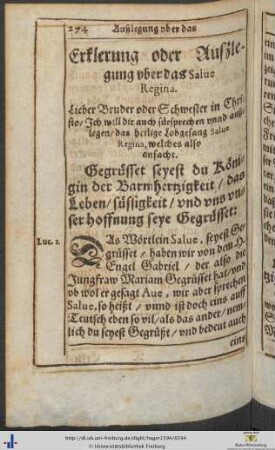 274 Außlegung vber das
Erklerung oder Außle-
gung vber das Salue
Regina.
Lieber Bruder oder Schwester in Chri-
sto/Ich will dir auch fürsprechen vnnd auß-
legen/das heilige Lobgesang Salue
Regina, welches also
anfacht.
Gegrüsset seyest du Köni-
gin der Barmhertzigkeit / das
Leben/ süssigkeit / vnd vns vn-
ser hoffnung seye Gegrüsset:
Luc. 1.
DAs Wörtlein Salue, seyest Ge-
grüsset / haben wir von dem H.
Engel Gabriel / der also die
Jungfraw Mariam Gegrüsset hat/vnd
ob wol er gesagt Aue, wir aber sprechen
Salue, so heißt / vnnd ist doch eins auff
Teutsch eben so vil/ als das ander/ nem-
lich du seyest Gegrüßt / vnd bedeut auch
eins
http://dl.ub.uni-freiburg.de/diglit/hager1594/0294
© Universitätsbibliothek Freiburg